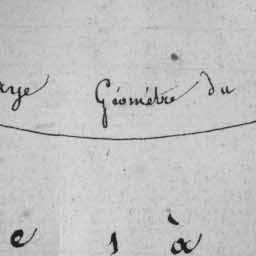 Géomètre du
e 1 à